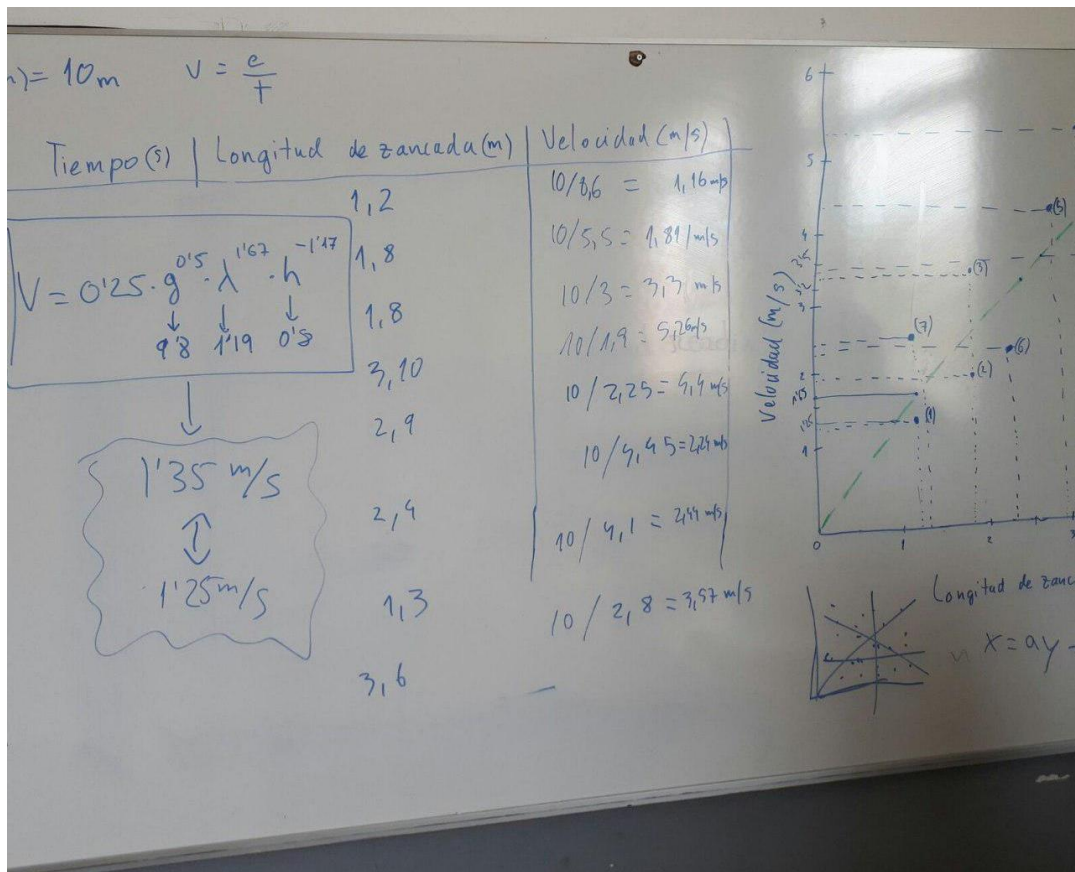 )= 10m V = e/t
Tiempo(s) | Longitud de zancada (m) | Velocidad (m/s)
1,2
1,8
1,8
3,10
2,9
2,4
1,3
3,6
10/8,6 = 1,16 m/s
10/5,5 = 1,81 m/s
10/3 = 3,3 m/s
10/1,9 = 5,26 m/s
10/2,25 = 4,4 m/s
10/4,45 = 2,24 m/s
10/4,1 = 2,44 m/s
10/2,8 = 3,57 m/s
V = 0'25 · g^0'5 · λ^1'67 · h^-1'17
9'8 1'19 0'8
1'35 m/s
1'25 m/s
Velocidad (m/s)
6
5
4
3
2
1
0 1 2 3
(5)
(3)
(7)
(6)
(2)
(1)
Longitud de zanc
x = ay -